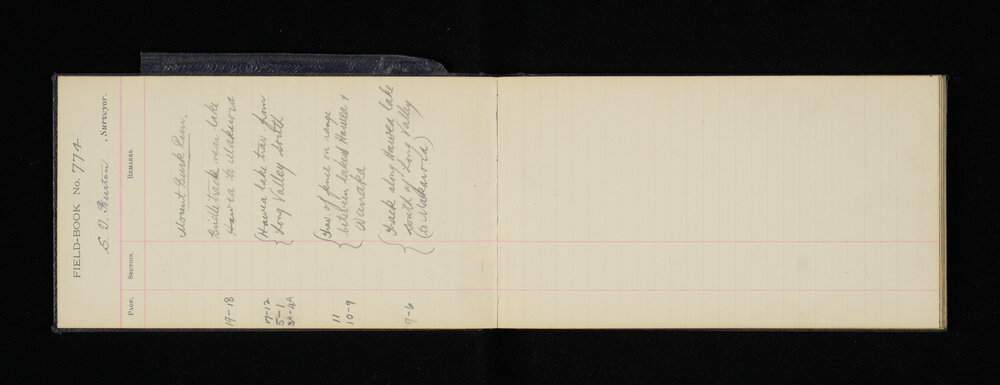 FIELD-BOOK No. 774
S. T. Burton, Surveyor.
PAGE. SECTION. REMARKS.
Mount Burk Run.
19-18 Bridle track near lake
Hawea to Makarora
17-12 Hawea lake trav from
5-1 Long Valley south
3A-4A
11 Trav of fence on range
10-9 between lakes Hawea &
Wanaka
9-6 Track along Hawea lake
south of Long Valley
(to Makarora)